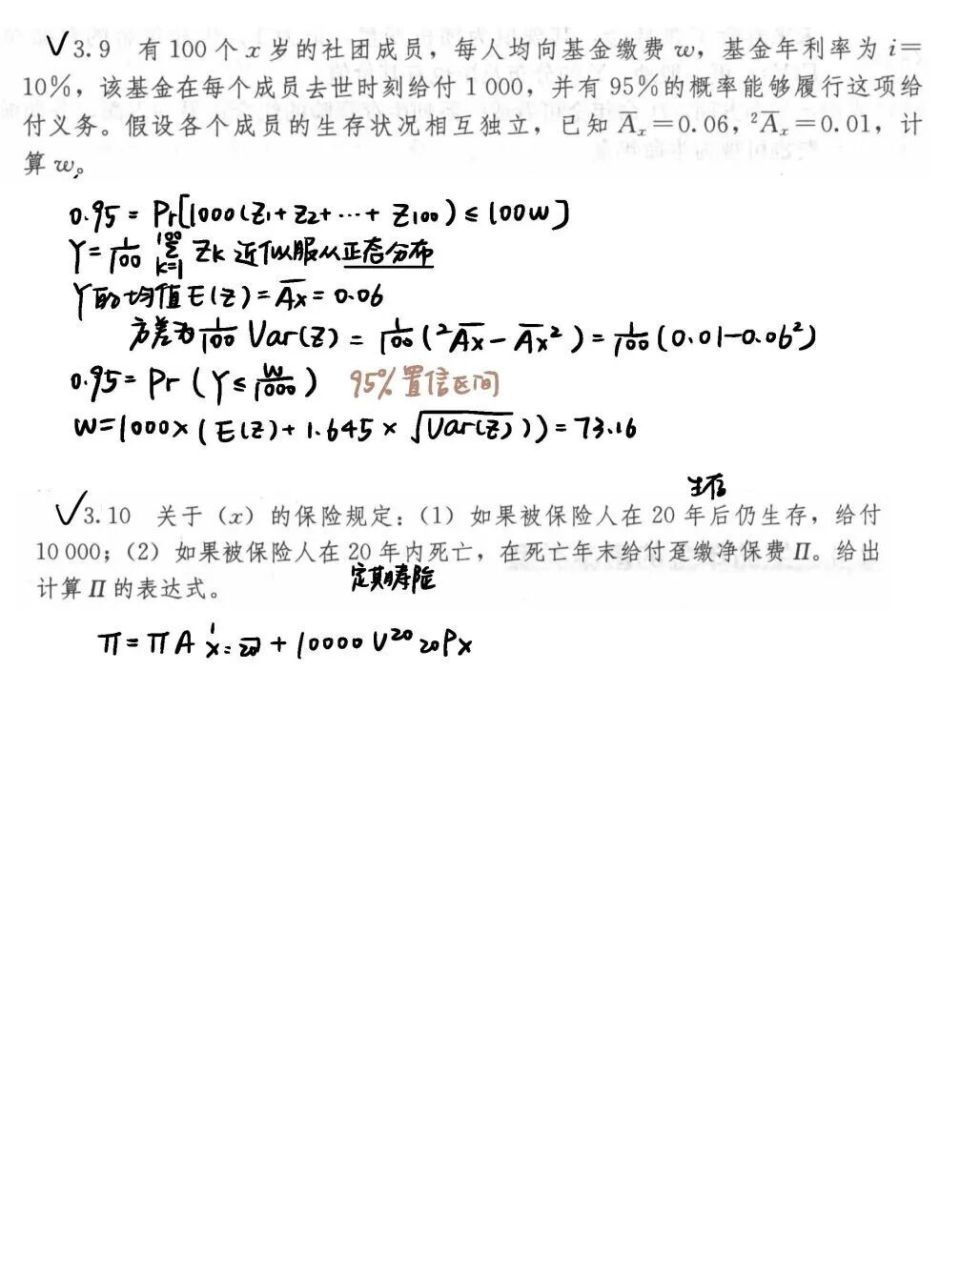 √3.9 有 100 个 x 岁的社团成员，每人均向基金缴费 w，基金年利率为 i=
10%，该基金在每个成员去世时刻给付 1 000，并有 95%的概率能够履行这项给
付义务。假设各个成员的生存状况相互独立，已知 A̅ₓ=0.06，²A̅ₓ=0.01，计
算 w。
0.95 = Pr[1000(Z1+Z2+…+Z100) ≤ 100w]
Y = 1/100 ∑_{k=1}^{100} Zk 近似服从正态分布
Y的均值E(Z) = A̅x = 0.06
方差为 1/100 Var(Z) = 1/100 (²A̅x - A̅x²) = 1/100 (0.01-0.06²)
0.95 = Pr (Y ≤ w/1000) 95%置信区间
w=1000×(E(Z)+1.645×√Var(Z)))=73.16
生存
√3.10 关于（x）的保险规定：（1）如果被保险人在 20 年后仍生存，给付
10 000；（2）如果被保险人在 20 年内死亡，在死亡年末给付趸缴净保费 Π。给出
定期寿险
计算 Π 的表达式。
π = πA¹x:20̅| + 10000 V²⁰ ₂₀Px